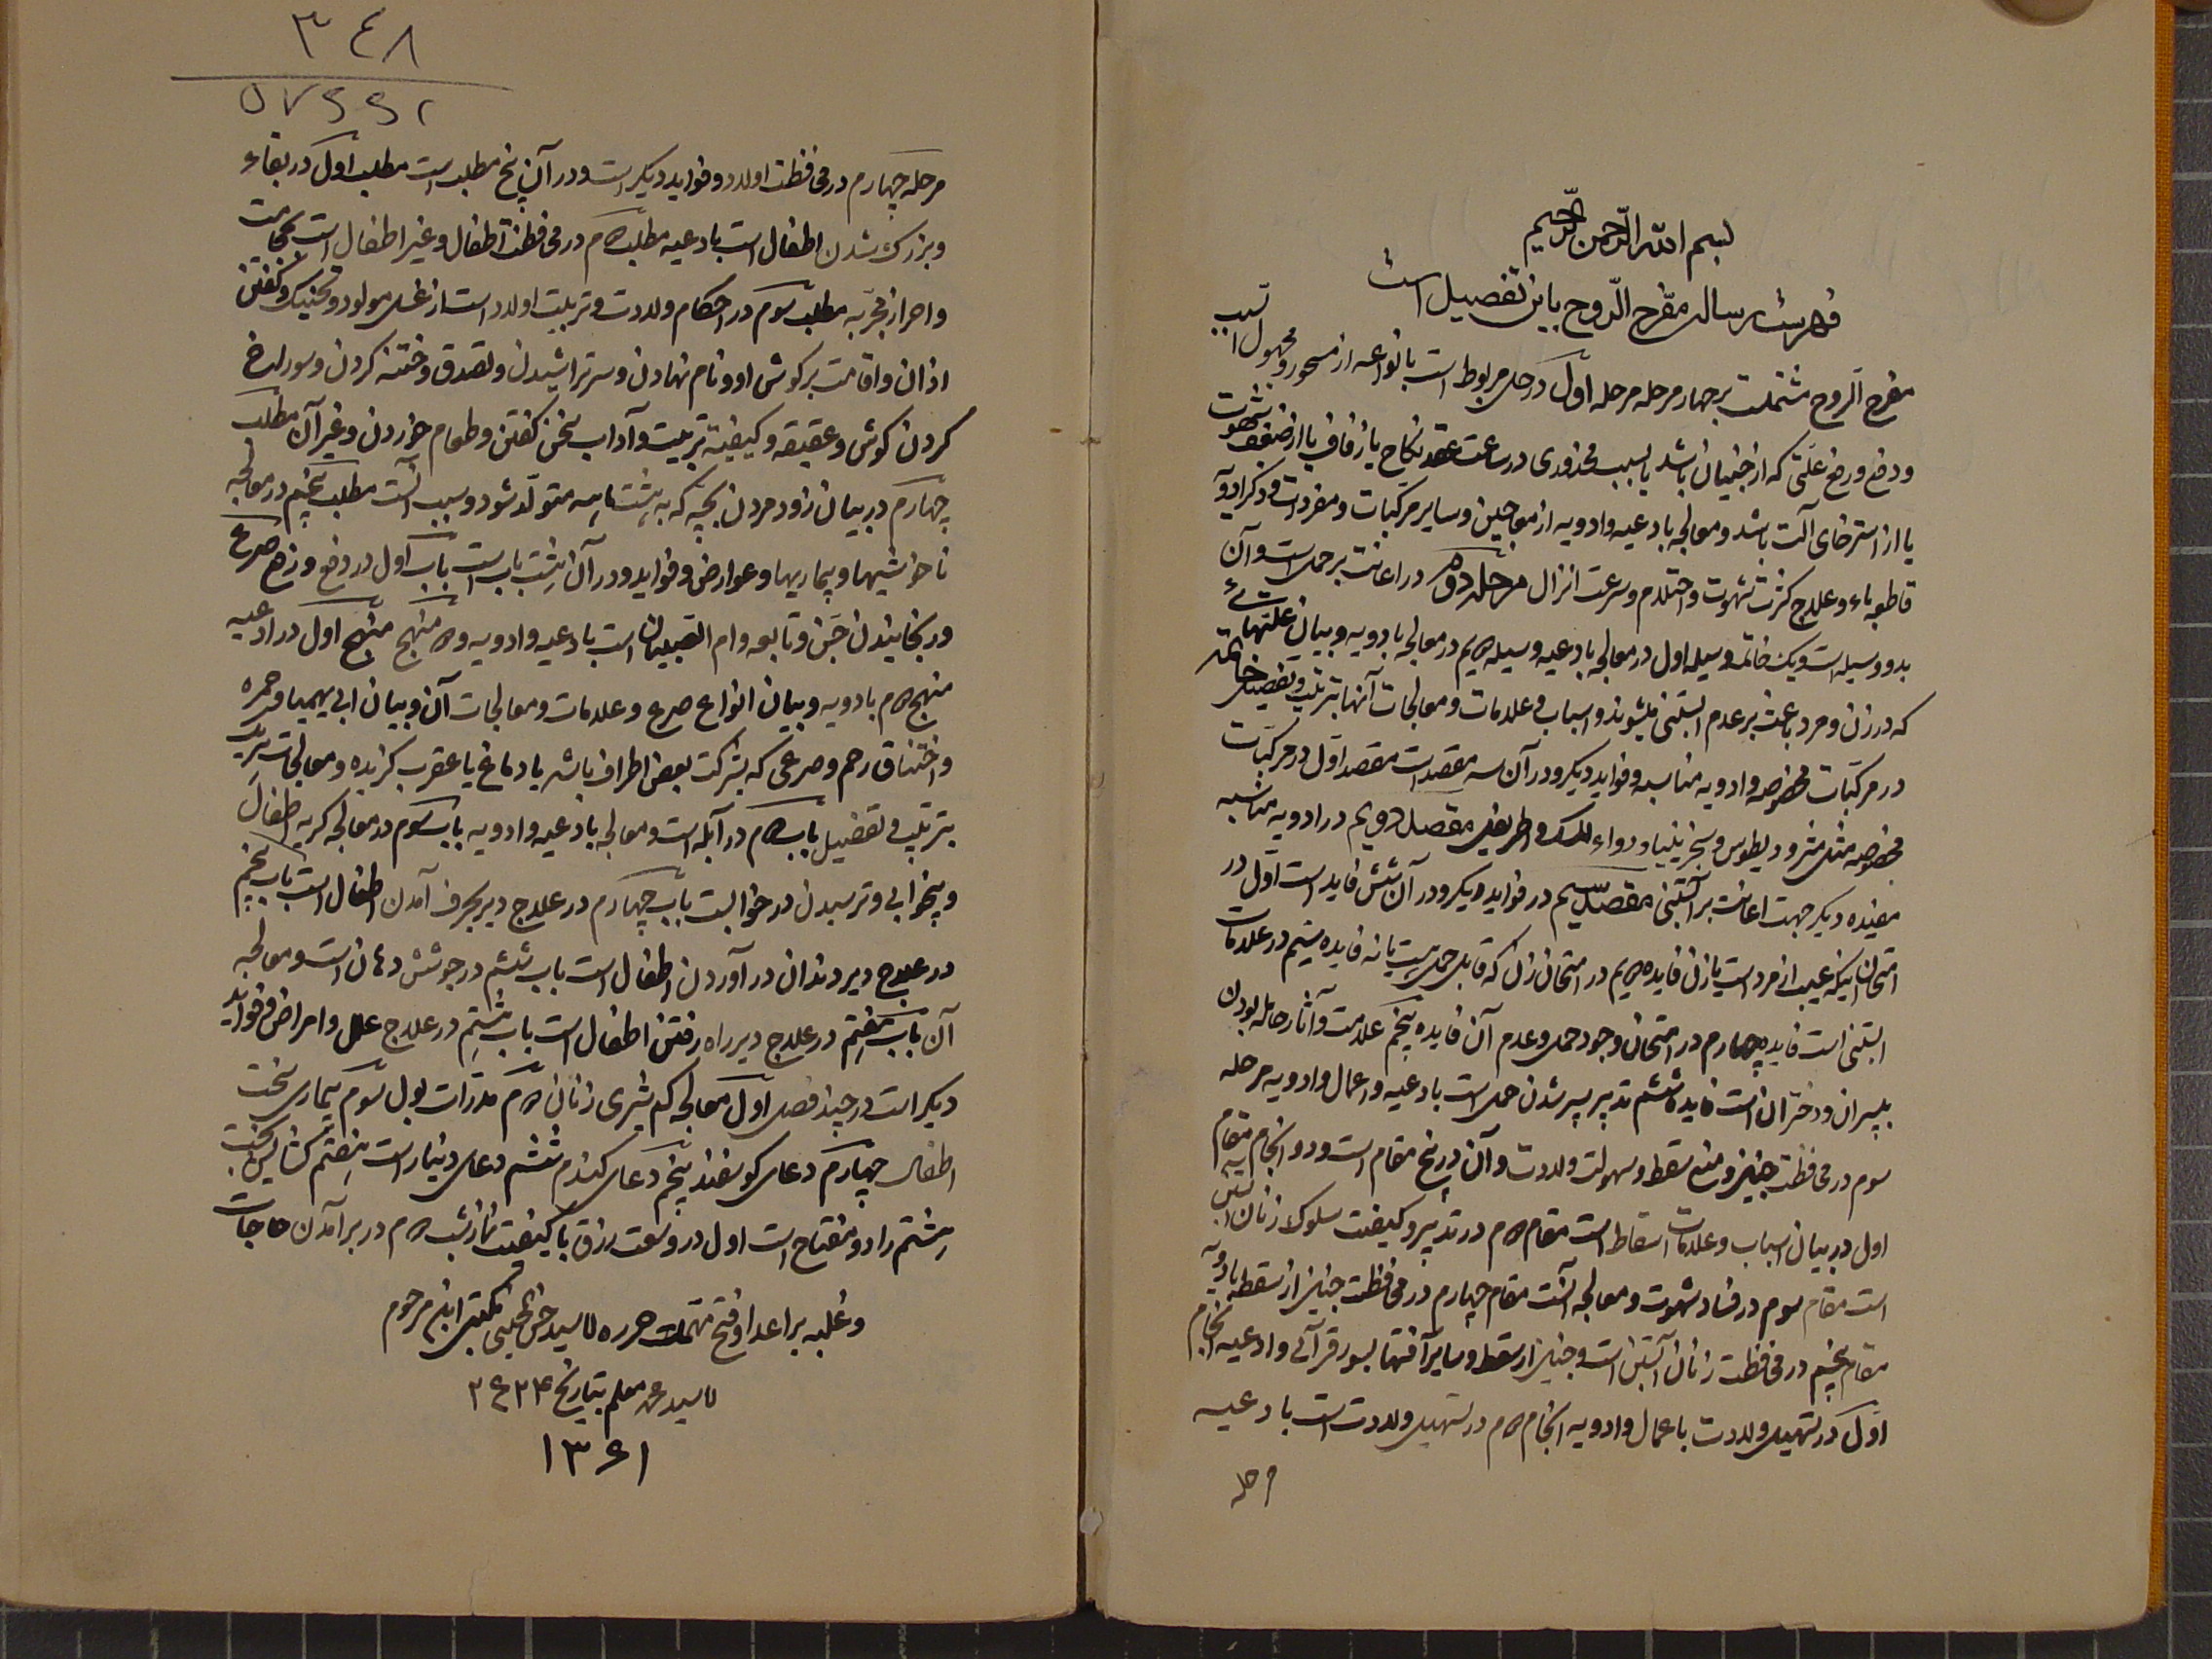 بسم الله الرّحمن الرّحیم
فهرست رساله مفرح الرّوح باین تفصیل است
مفرح الرّوح مشتملست بر چهار مرحله مرحله اول در حل مربوط است بانواعه از مسحور و مجهول السبب
و دفع و رفع علّتی که از جنّیان باشد یا بسبب محذوری در ساعت عقد نکاح یا زفاف یا از ضعف شهوت
یا از استرخای آلت باشد و معالجه بادعیه و ادویه از معاجین و سایر مرکبات و مفردات و ذکر ادویه
قاطع باه و علاج کثرت شهوت و احتلام و سرعت انزال مرحله دوم در اعانت بر حمل است و آن
بدو وسیله است و یک خاتمه وسیله اول در معالجه بادعیه وسیله دویم در معالجه بادویه و بیان علتهائی
که در زن و مرد باعث بر عدم آبستنی میشوند و اسباب و علامات و معالجات آنها بترتیب و تفصیل خاتمه
در مرکبات مخصوصه و ادویه مناسبه و فواید دیگر و در آن سه مقصد است مقصد اوّل در مرکبات
مخصوصه مثل مثرودیطوس و سجزینیا و دواء المسک و اطریفل مقصد دویم در ادویه مناسبه
مفیده دیگر جهت اعانت بر آبستنی مقصد سیم در فواید دیگر و در آن شش فایده است اوّل در
امتحان اینکه عیب از مرد است یا زن فایده دویم در امتحان زنی که قابل حمل هست یا نه فایده سیم در علامات
آبستنی است فایده چهارم در امتحان وجود حمل و عدم آن فایده پنجم علامت و آثار حامله بودن
بپسران و دختران است فایده ششم تدبیر پسر شدن حمل است بادعیه و اعمال و ادویه مرحله
سوم در محافظت جنین و منع سقط و سهولت ولادت و آن در پنج مقام است و دو انجام مقام
اول در بیان اسباب و علامات اسقاط است مقام دوم در تدبیر و کیفیت سلوک زنان آبستن
است مقام سوم در فساد شهوت و معالجه آنست مقام چهارم در محافظت جنین از سقط بادویه
مقام پنجم در محافظت زنان آبستن است و جنین از سقط و سایر آفتها بسور قرآنی و ادعیه انجام
اوّل در تسهیل ولادت باعمال و ادویه انجام دوم در تسهیل ولادت است بادعیه
مرحله
۳۴۸
مرحله چهارم در محافظت اولاد و فواید دیگر است و در آن پنج مطلب است مطلب اول در بقاء
و بزرگ شدن اطفال است بادعیه مطلب دوم در محافظت اطفال و غیر اطفال است
و احراز مجرّبه مطلب سوم در احکام ولادت و تربیت اولاد است از غسل مولود و تحنیک و گفتن
اذان و اقامت بر گوش او و نام نهادن و سر تراشیدن و تصدق و ختنه کردن و سوراخ
کردن گوش و عقیقه و کیفیت تربیت و آداب سخن گفتن و طعام خوردن و غیر آن مطلب
چهارم در بیان زود مردن بچه که به هشت ماهه متولّد شود و سبب آنست مطلب پنجم در معالجه
ناخوشیها و بیماریها و عوارض و فواید و در آن هشت باب است باب اول در دفع و زجر صرع
و رنجانیدن جن و تابعه و ام الصبیان است بادعیه و ادویه و دو منهج منهج اول در ادعیه
منهج دوم بادویه و بیان انواع صرع و علامات و معالجات آن و بیان ابی یهمیا و حمره
و اختناق رحم و صرعی که بشرکت بعض اطراف باشد یا دماغ یا عقرب گزیده و معالجات هریک
بترتیب و تفصیل باب دوم در آبله است و معالجه بادعیه و ادویه باب سوم در معالجه گریه اطفال
و بیخوابی و ترسیدن در خوابست باب چهارم در علاج دیر بحرف آمدن اطفال است باب پنجم
در علاج دیر دندان درآوردن اطفال است باب ششم در جوشش دهان است و معالجه
آن باب هفتم در علاج دیر راه رفتن اطفال است باب هشتم در علاج علل و امراض و فواید
دیگر است در چند فصل اول معالجه کم شیری زنان دوم مدرّات بول سوم بیماری سخت
اطفال چهارم دعای گوسفند پنجم دعای گندم ششم دعای دینار است هفتم گشایش بخت
هشتم را دو مفتاح است اول در وسعت رزق با کیفیت نماز شب دوم در برآمدن حاجات
و غلبه بر اعدا و فتح مهمّات حرره
بتاریخ
۱۳۶۱